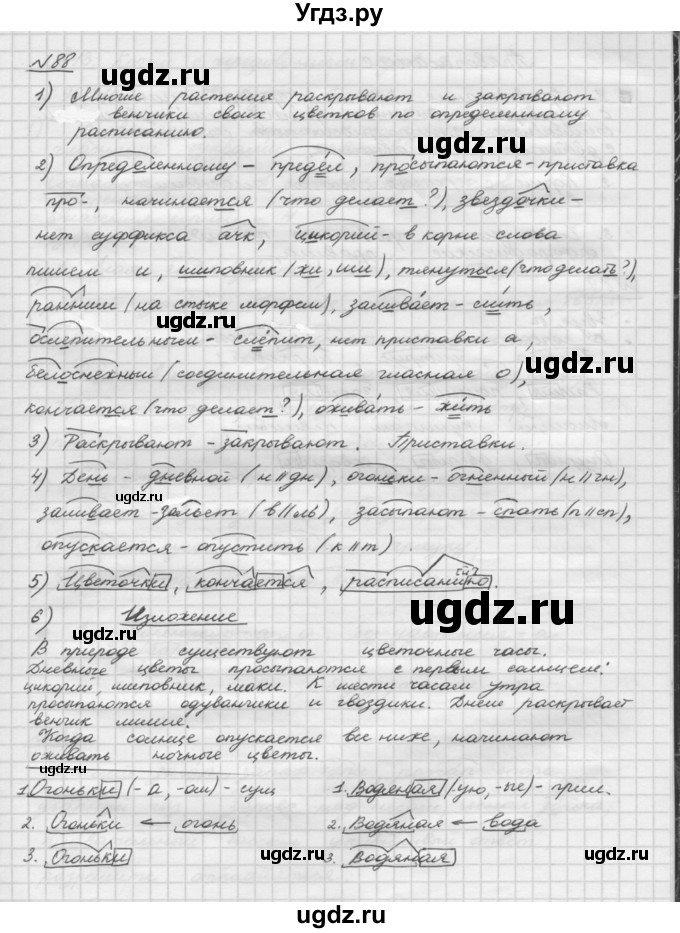 Угдз.ру
№88
ugdz.ru
1) Многие растения раскрывают и закрывают
венчики своих цветков по определенному
расписанию.
ugdz.ru
2) Определенному – предел, просыпаются – приставка
про-, начинается (что делает?), звездочки –
нет суффикса ачк, цикорий – в корне слова
ugdz.ru
пишем и, шиповник (жи, ши), тянуться (что делать?),
ranний (на стыке морфем), заливает – лить,
ugdz.ru
ослепительным – слепит, нет приставки а,
белоснежный (соединительная гласная о),
ugdz.ru
кончается (что делает?), оживать – жить
3) Раскрывают – закрывают. Приставки.
4) День – дневной (н//дн), огоньки – огненный (н//гн),
ugdz.ru
заливает – зальет (в//ль), засыпают – спать (п//сп),
опускается – опустить (к//т).
ugdz.ru
5) Цветочки, кончается, расписанию.
6) Изложение
ugdz.ru
В природе существуют цветочные часы.
Дневные цветы просыпаются с первым солнцем:
цикорий, шиповник, маки. К шести часам утра
просыпаются одуванчики и гвоздики. Днём раскрывает
венчик лилия.
Когда солнце опускается все ниже, начинают
оживать ночные цветы.
ugdz.ru
1. Огоньки (-а, -ом) – сущ 1. Водяная (ую, -ые) – прил.
2. Огоньки ← огонь 2. Водяная ← вода
ugdz.ru
3. Огоньки 3. Водяная
ugdz.ru
ugdz.ru